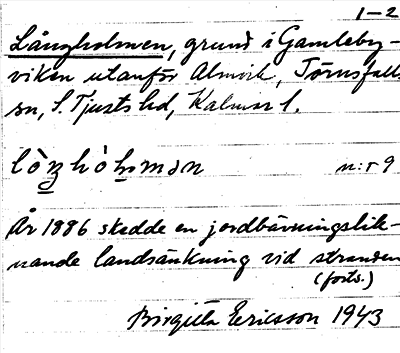 1-2
Långholmen, grund i Gamleby-
viken utanför Almvik, Törnsfalls
sn, S. Tjusts hd, Kalmar l.
n:r 9
År 1886 skedde en jordbävningslik-
nande landsänkning vid stranden
(forts.)
Birgitta Ericsson 1943